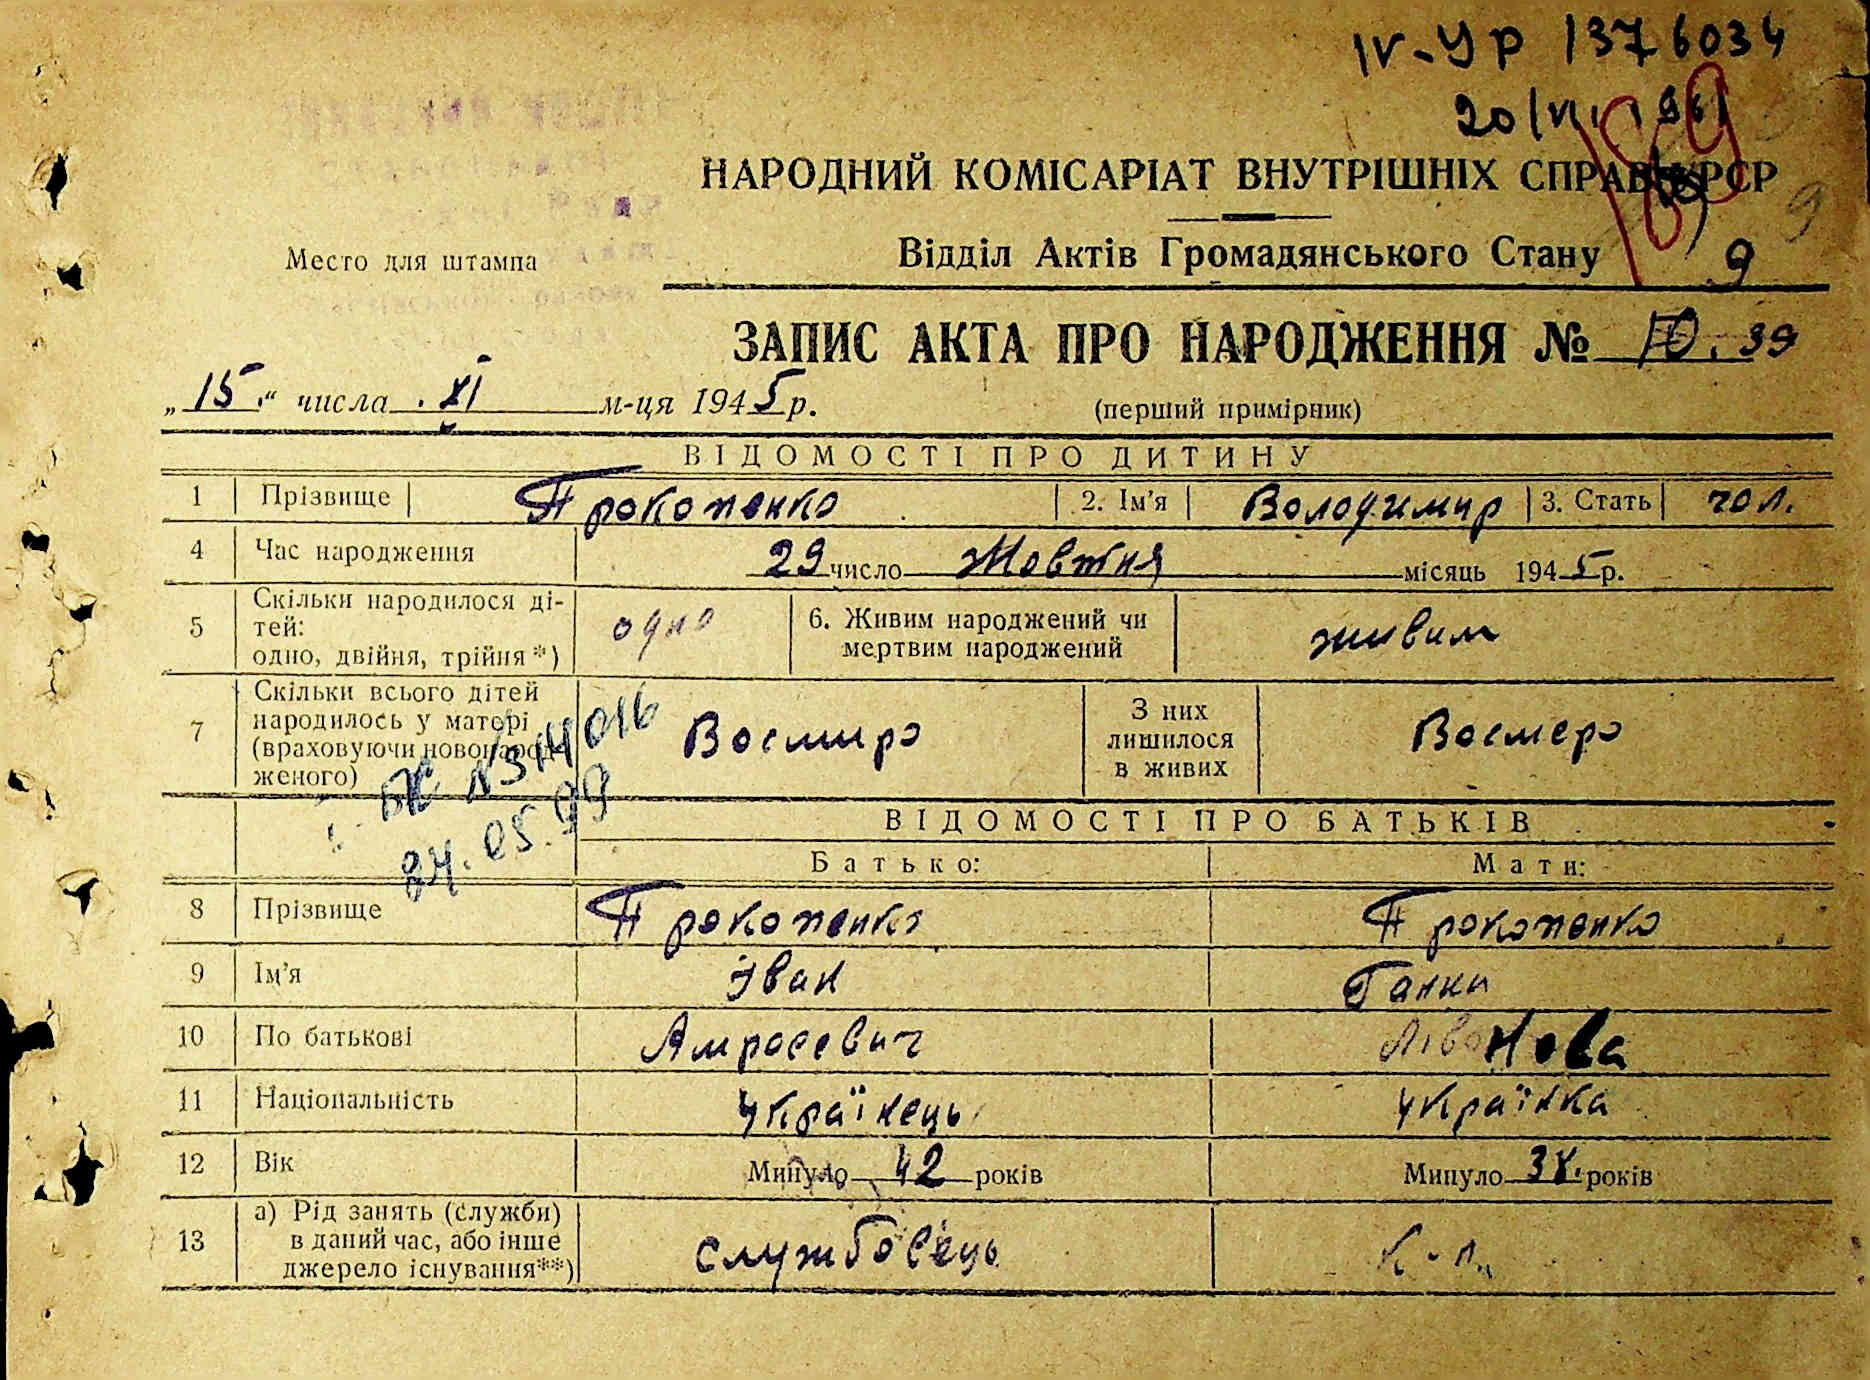 IV-УР 1376034
20/VI 1961
189
НАРОДНИЙ КОМІСАРІАТ ВНУТРІШНІХ СПРАВ УРСР
9
Место для штампа
Відділ Актів Громадянського Стану
9
ЗАПИС АКТА ПРО НАРОДЖЕННЯ № 39
„15.“ числа XI м-ця 1945 р.
(перший примірник)
ВІДОМОСТІ ПРО ДИТИНУ
1 Прізвище Прокопенко 2. Ім’я Володимир 3. Стать чол.
4 Час народження 29 число Жовтня місяць 1945 р.
5 Скільки народилося ді-
тей:
одно, двійня, трійня *)
одно
6. Живим народжений чи
мертвим народжений
живим
7 Скільки всього дітей
народилось у матері
(враховуючи новонарод-
женого)
Восмиро
З них
лишилося
в живих
Восмеро
24.05.99
ВІДОМОСТІ ПРО БАТЬКІВ
Батько: Мати:
8 Прізвище Прокопенко Прокопенко
9 Ім’я Іван Ганна
10 По батькові Амросевич
11 Національність українець українка
12 Вік Минуло 42 років Минуло 38. років
13 а) Рід занять (служби)
в даний час, або інше
джерело існування**)
службовець к-п.